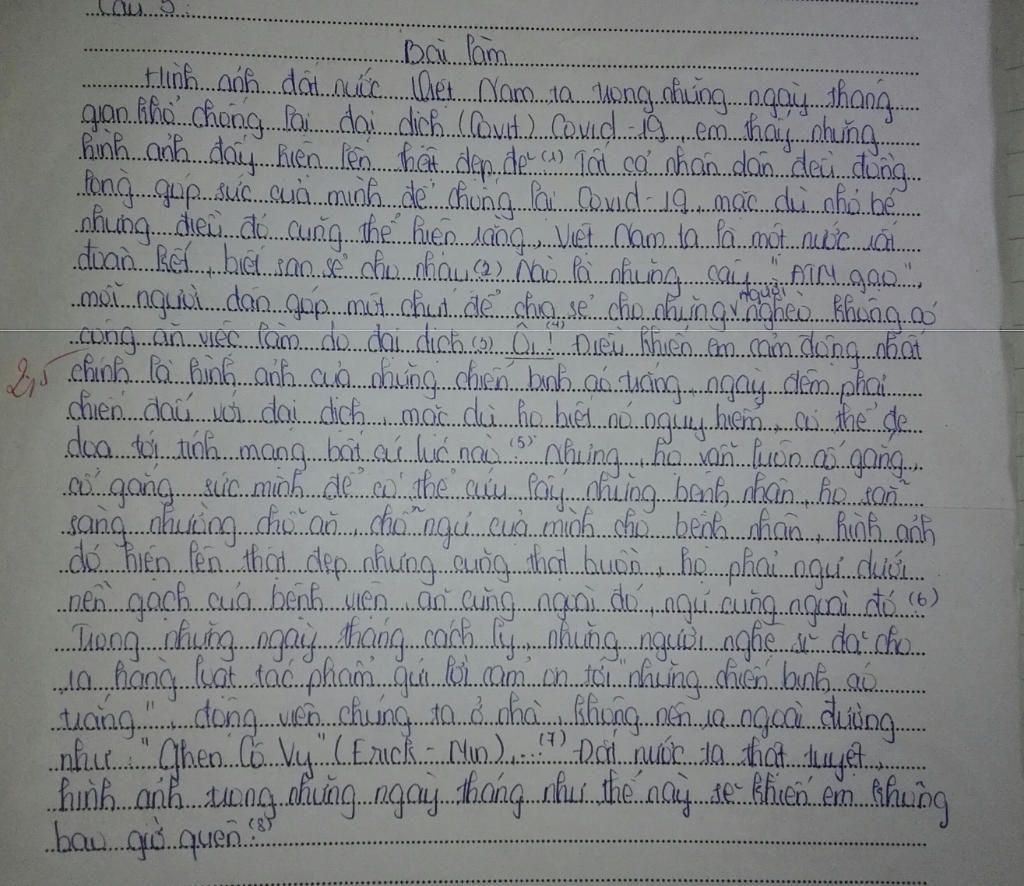 Câu 5:
Bài làm
Hình ảnh đất nước Việt Nam ta trong những ngày tháng
gian khổ chống lại đại dịch (Covit) Covid-19, em thấy những
hình ảnh đấy hiện lên thật đẹp đẽ (1) Tất cả nhân dân đều đồng
lòng góp sức của mình để chống lại Covid-19, mặc dù nhỏ bé
nhưng điều đó cũng thể hiện rằng, Việt Nam ta là một nước rất
đoàn kết, biết san sẻ cho nhau (2) Nào là những cây "ATM gạo",
mỗi người dân góp một chút để chia sẻ cho những người nghèo không có
công ăn việc làm do đại dịch (3) Ôi! (4) Điều khiến em cảm động nhất
2,5
chính là hình ảnh của những chiến binh áo trắng, ngày đêm phải
chiến đấu với đại dịch, mặc dù họ biết nó nguy hiểm, có thể đe
dọa tới tính mạng bất cứ lúc nào (5) Nhưng, họ vẫn luôn cố gắng,
cố gắng sức mình để có thể cứu lấy những bệnh nhân, họ sẵn
sàng nhường chỗ ăn, chỗ ngủ của mình cho bệnh nhân, hình ảnh
đó hiện lên thật đẹp nhưng cũng thật buồn, họ phải ngủ dưới
nền gạch của bệnh viện, ăn cũng ngoài đó, ngủ cũng ngoài đó (6)
Trong những ngày tháng cách ly, những người nghệ sĩ đã cho
ra hàng loạt tác phẩm gửi lời cảm ơn tới "những chiến binh áo
trắng", động viên chúng ta ở nhà, không nên ra ngoài đường
như: "Ghen Cô Vy" (Erick - Min),... (7) Đất nước ta thật tuyệt,
hình ảnh trong những ngày tháng như thế này sẽ khiến em không
bao giờ quên! (8)